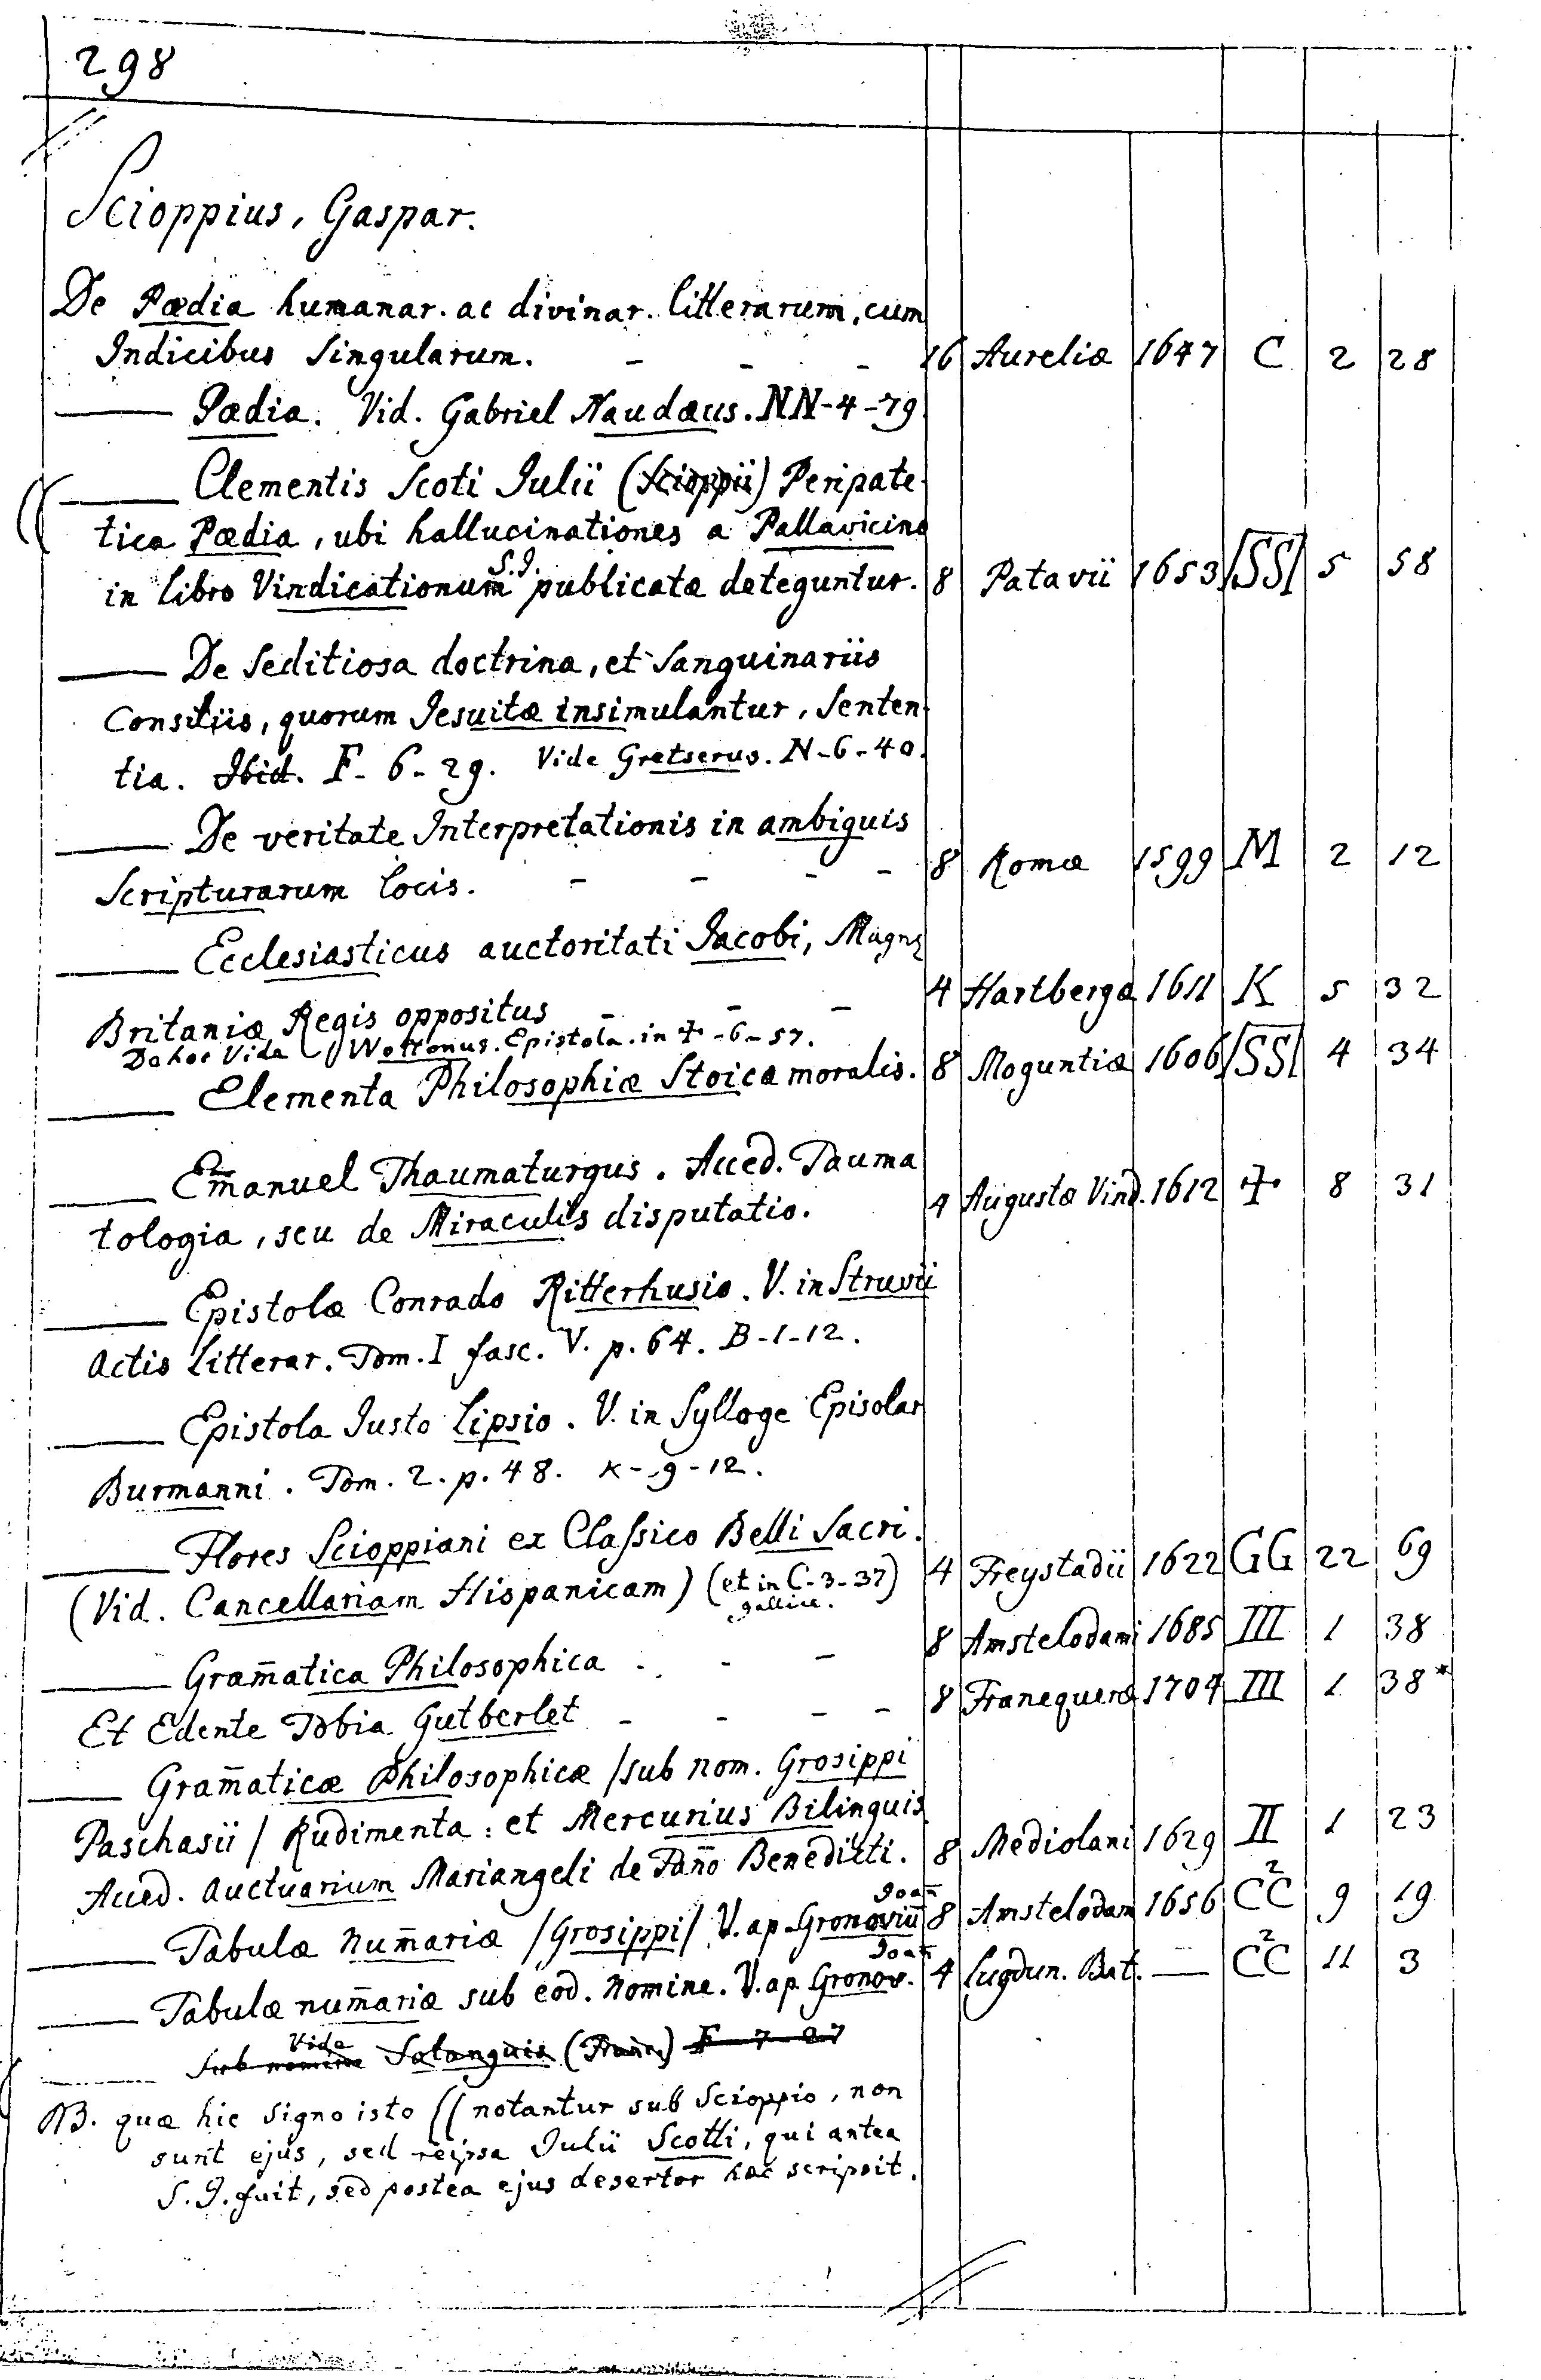 298
Scioppius, Gaspar.
De Pædia humanar. ac divinar. litterarum, cum
Indicibus singularum. - - - 16 Aureliæ 1647 C 2 28
—— Pædia. Vid. Gabriel Naudæus. NN-4-79
(( —— Clementis Scoti Julii (Scioppii) Peripate-
tica Pædia, ubi hallucinationes a Pallavicino
in libro Vindicationum S.J. publicatæ deteguntur. 8 Patavii 1653 /SS/ 5 58
—— De seditiosa doctrina, et sanguinariis
Consiliis, quorum Jesuitæ insimulantur, senten-
tia. Ibid. F-6-29. Vide Gretserus. N-6-40.
—— De veritate Interpretationis in ambiguis
Scripturarum locis. - - - - 8 Romæ 1599 M 2 12
—— Ecclesiasticus auctoritati Jacobi, Magnę
Britaniæ Regis oppositus - - - 4 Hartbergæ 1611 K 5 32
De hoc Vide Wottonus. Epistola. in ✢-6-57.
—— Elementa Philosophiæ Stoicæ moralis. 8 Moguntiæ 1606 /SS/ 4 34
—— Em̄anuel Thaumaturgus. Acced. Tauma
tologia, seu de Miraculis disputatio. 4 Augustæ Vind. 1612 ✢ 8 31
—— Epistolæ Conrado Ritterhusio. V. in Struvii
Actis Litterar. Tom. I fasc. V. p. 64. B-1-12.
—— Epistola Justo Lipsio. V. in Sylloge Episolar
Burmanni. Tom. 2. p. 48. K-9-12.
—— Flores Scioppiani ex Classico Belli Sacri.
(Vid. Cancellariam Hispanicam) (et in C-3-37) 4 Freystadii 1622 GG 22 69
gallice.
—— Gram̄atica Philosophica - - - 8 Amstelodami 1685 III 1 38
Et Edente Tobia Gutberlet - - - - 8 Franequeræ 1704 III 1 38*
—— Gram̄aticæ Philosophicæ /sub nom. Grosippi
Paschasii/ Rudimenta: et Mercurius Bilinguis
Acced. Auctuarium Mariangeli de Fan̄o Benedicti. 8 Mediolani 1629 II 1 23
—— Tabulæ num̄ariæ /Grosippi/ V. ap. Joan̄ Gronoviū 8 Amstelodam 1656 CC2 9 19
—— Tabulæ num̄ariæ sub eod. nomine. V. ap. Joan̄ Gronov. 4 Lugdun. Bat. — CC2 11 3
—— Sub nomine Vide F 7 27
NB. quæ hic signo isto (( notantur sub Scioppio, non
sunt ejus, sed reipsa Julii Scotti, qui antea
S.J. fuit, sed postea ejus desertor hæc scripsit.